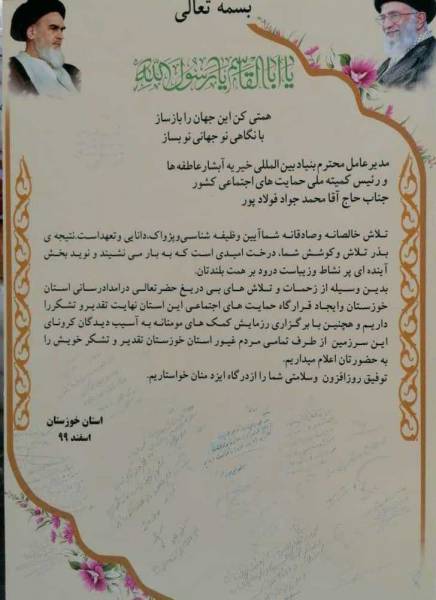 بسمه تعالی
یا ابا القاسم یا رسول الله
همتی کن این جهان را باز ساز
با نگاهی نو جهانی نو بساز
مدیر عامل محترم بنیاد بین المللی خیریه آبشار عاطفه ها
و رئیس کمیته ملی حمایت های اجتماعی کشور
جناب حاج آقا محمد جواد فولاد پور
تلاش خالصانه و صادقانه شما آیین وظیفه شناسی و پژواک، دانایی و تعهد است. نتیجه ی
بذر تلاش و کوشش شما، درخت امیدی است که به بار می نشیند و نوید بخش
آینده ای پر نشاط و زیباست درود بر همت بلندتان.
بدین وسیله از زحمات و تلاش های بی دریغ حضرتعالی در امدادرسانی استان
خوزستان و ایجاد قرارگاه حمایت های اجتماعی این استان نهایت تقدیر و تشکر را
داریم و همچنین با برگزاری رزمایش کمک های مومنانه به آسیب دیدگان کرونای
این سرزمین از طرف تمامی مردم غیور استان خوزستان تقدیر و تشکر خویش را
به حضورتان اعلام میداریم.
توفیق روزافزون وسلامتی شما را از درگاه ایزد منان خواستاریم.
استان خوزستان
اسفند ۹۹